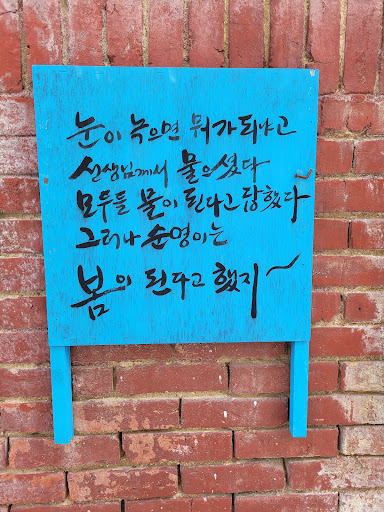 눈이 녹으면 뭐가 되냐고
선생님께서 물으셨다
모두들 물이 된다고 답했다
그러나 순영이는
봄이 된다고 했지~